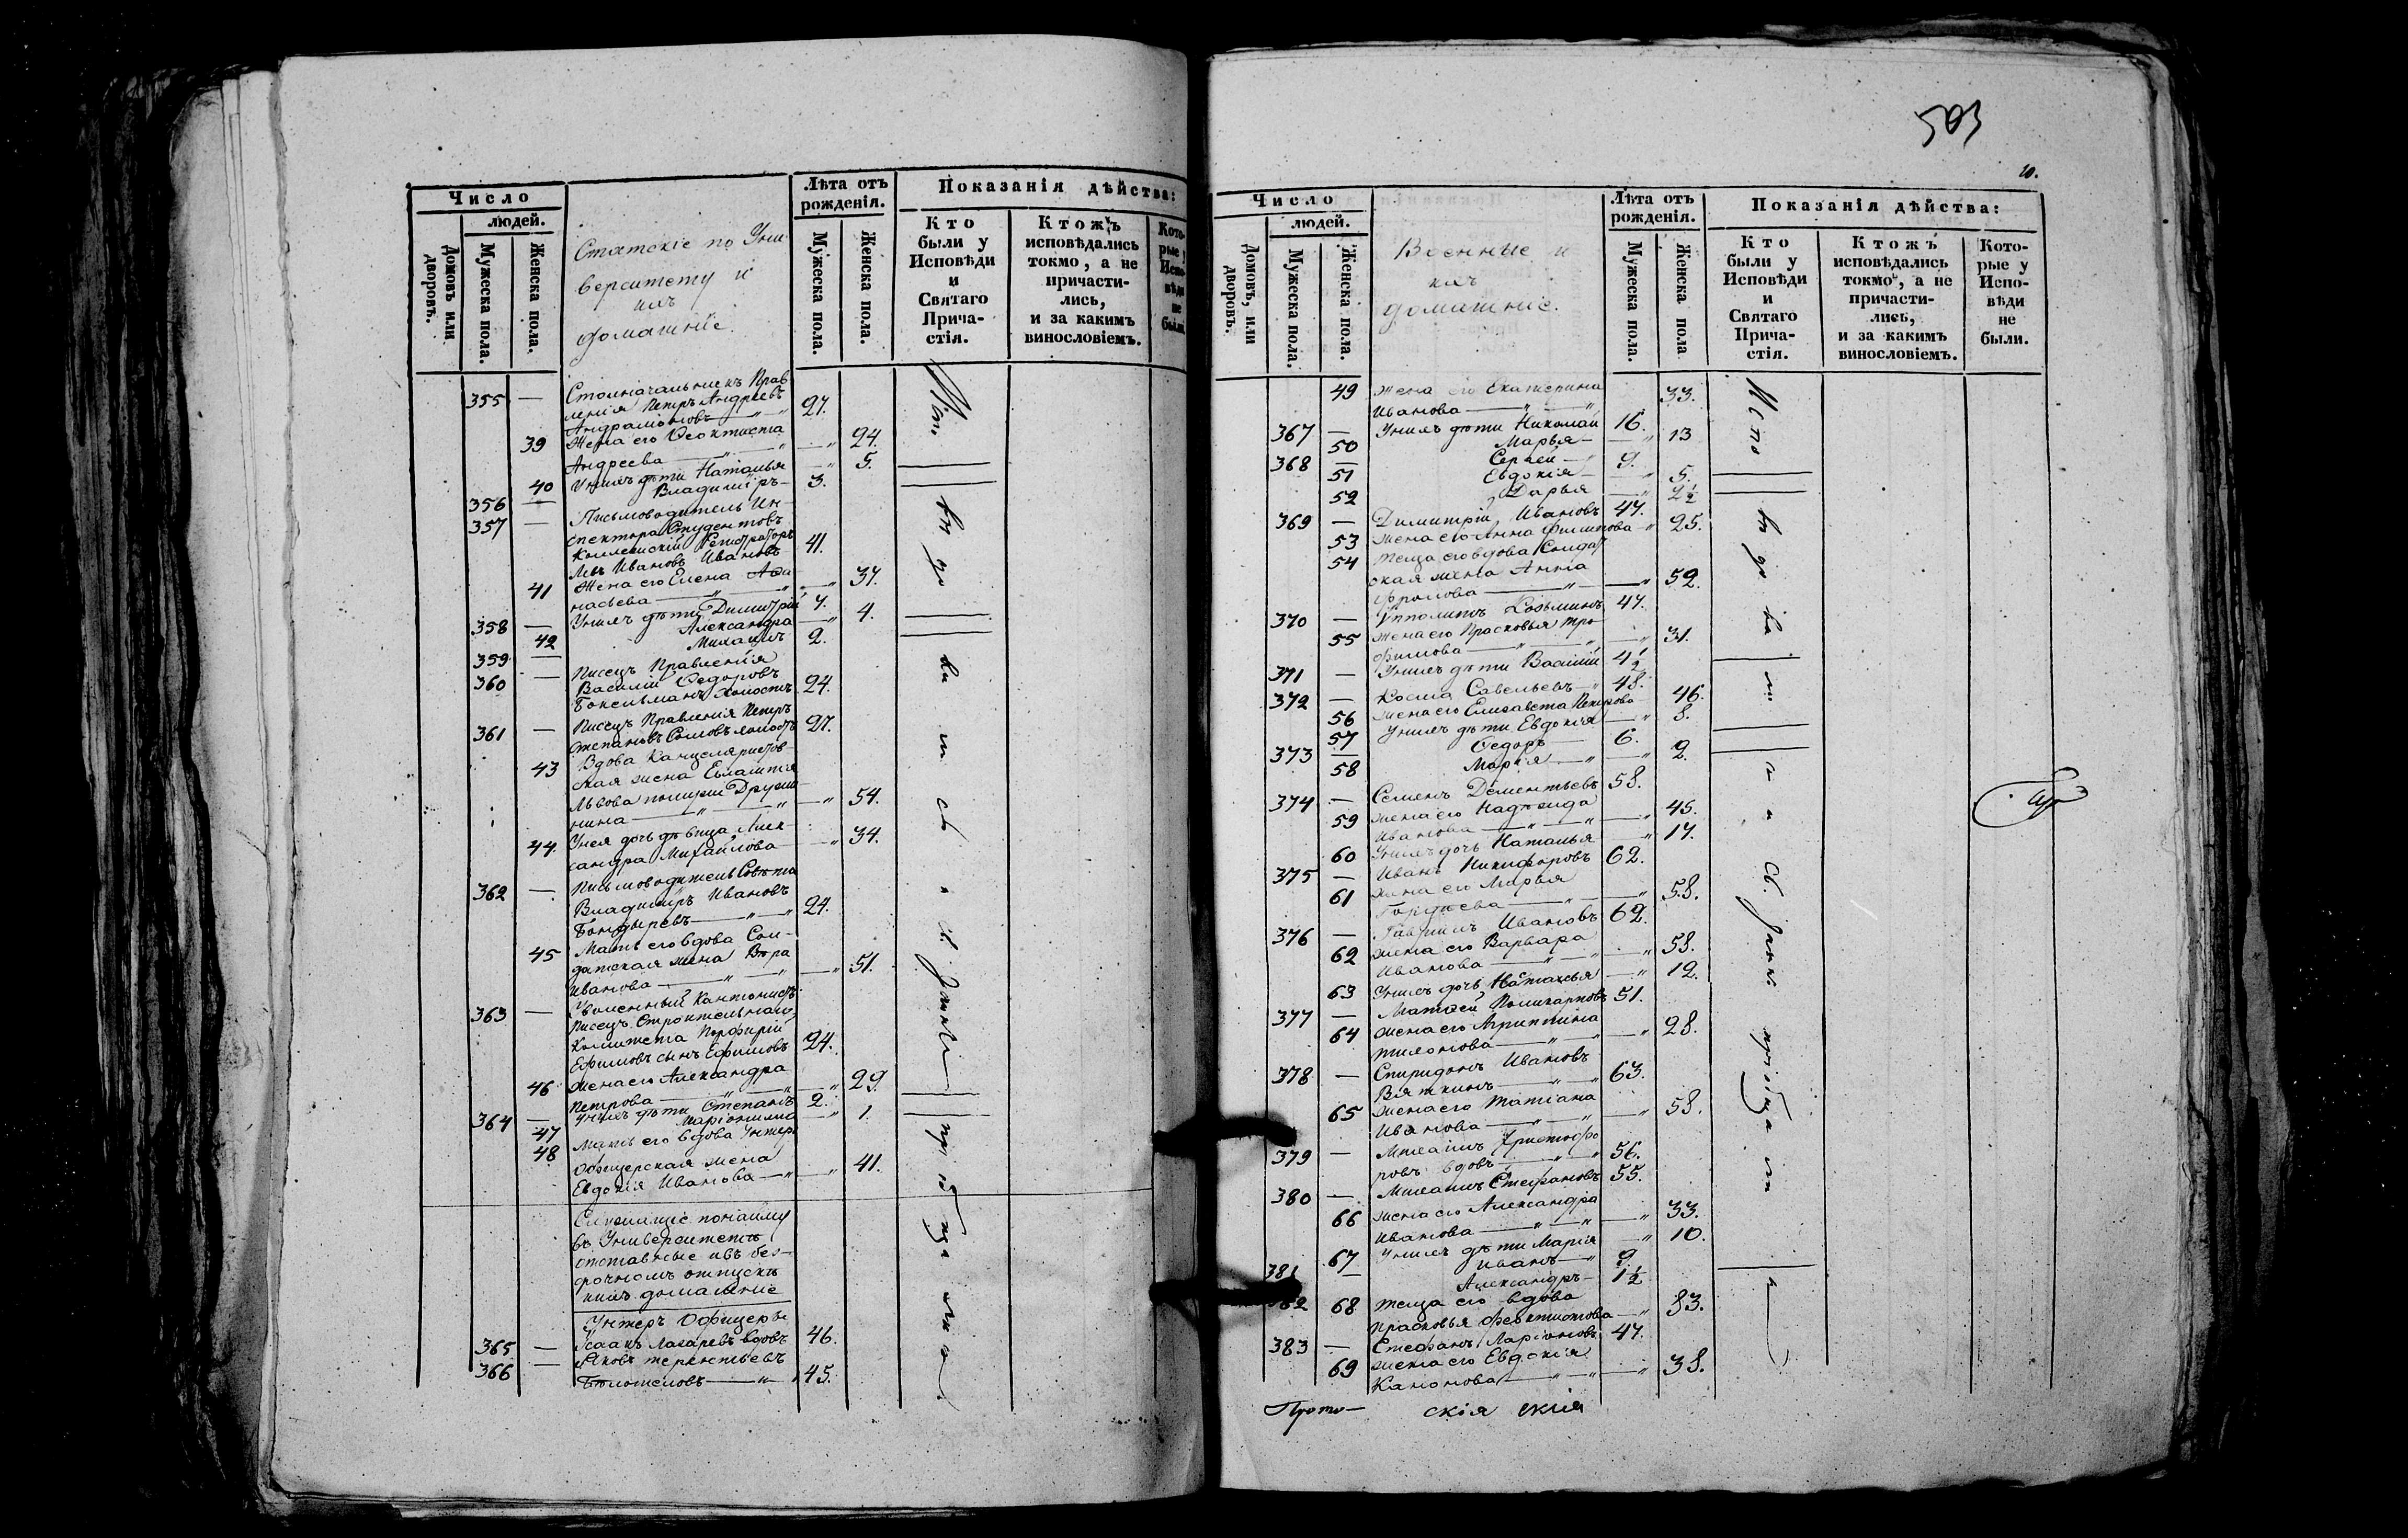 Число
людей.
Домовъ или дворовъ.
Мужеска пола.
Женска пола.
Статскіе по Уни-
верситету и
ихъ
домашніе.
Лѣта отъ
рожденія.
Мужеска пола.
Женска пола.
Показанія дѣйства:
Кто
были у
Исповѣди
и
Святаго
Прича-
стія.
Ктожъ
исповѣдались
токмо, а не
причасти-
лись,
и за какимъ
винословіемъ.
355 — Столоначальникъ Прав
ленія Петръ Андреевъ 27.
39 Жена его Ѳеоктиста
Андреева — " — " 24.
40 У нихъ дѣти Наталья — " 5.
356 — Владиміръ — 3.
357 — Письмоводитель Ин-
спектора Студентовъ
Коллежскій Регистраторъ
Ивановъ 41.
41 Жена его Елена Аѳа-
насьева — " — " 37.
358 — У нихъ дѣти Димитрій 7.
42 Александра — " 4.
359 — Михаилъ 2.
360 — Писецъ Правленія
Василій Ѳедоровъ
холостъ 24.
361 — Писецъ Правленія Петръ
Степановъ холостъ 27.
43 Вдова Канцеляристов-
ская жена
Львова
— " — " 54.
44 У нея дочь дѣвица Алек-
сандра Михайлова — " 34.
362 — Письмоводитель Совѣта
Владиміръ Ивановъ
Бондыревъ — " — " 24.
45 Мать его вдова Сол-
датская жена Вѣра
Иванова — " — " 51.
363 — Уволенный Кантонистъ
Писецъ Строительнаго
Комитета Порфирій
Ефимовъ сынъ Ефимовъ 24.
46 Жена его Александра
Петрова — " — " 29.
364 — У нихъ дѣти Степанъ 2.
47 — " 1.
48 Мать его вдова Унтеръ
Офицерская жена
Евдокія Иванова — " — " 41.
Служащіе по найму
въ Университетѣ
отставные и въ без-
срочномъ отпускѣ
и ихъ домашніе
Унтеръ Офицеры
365 — Исаакъ Лазаревъ вдовъ 46.
366 — Яковъ Терентьевъ
— " — 45.
503
10.
Число
людей.
Домовъ, или дворовъ.
Мужеска пола.
Женска пола.
Военные и
ихъ
домашніе.
Лѣта отъ
рожденія.
Мужеска пола.
Женска пола
Показанія дѣйства:
Кто
были у
Исповѣди
и
Святаго
Прича-
стія.
Ктожъ
исповѣдались
токмо, а не
причасти-
лись,
и за какимъ
винословіемъ.
Кото-
рые у
Испо-
вѣди
не
были.
49 Жена его Екатерина
Иванова — " — " 33.
367 — У нихъ дѣти Николай 16.
50 Марья — " 13
368 — Сергѣй — 9.
51 Евдокія — " 5.
52 Дарья — " 2½
369 — Димитрій Ивановъ 47.
53 Жена его Анна Филипова — " 25.
54 Теща его вдова Солдат
ская жена Анна
Фролова — " — " 52.
370 — Ипполитъ Козьминъ 47.
55 Жена его Прасковья Тро-
фимова — " — " 31.
371 — У нихъ дѣти Василій 4½
372 — Косма Савельевъ — " 48.
56 Жена его Елисавета Петрова 46.
57 У нихъ дѣти Евдокія — " 8.
373 — Ѳедоръ 6.
58 Марія — " 2.
374 — Семенъ Дементьевъ 58.
59 Жена его Надежда
Иванова — " — " 45.
60 У нихъ дочь Наталья — " 17.
375 — Иванъ Никифоровъ 62.
61 Жена его Марья
— " 58.
376 — Гавріилъ Ивановъ 62.
62 Жена его Варвара
Иванова — " — " 58.
63 У нихъ дочь Наталья — " 12.
377 — Матвѣй Поликарповъ 51.
64 Жена его Агриппина
Тихонова — " — " 28.
378 — Спиридонъ Ивановъ
Вяткинъ — " — " 63.
65 Жена его Татіана
Иванова — " — " 58.
379 — Михаилъ Христофо
ровъ вдовъ — " — " 56.
380 — Михаилъ Стефановъ 55.
66 Жена его Александра
Иванова — " — " 33.
67 У нихъ дѣти Марія — " 10.
381 — Иванъ — " 9.
382 Александръ — 1½
68 Теща его вдова
Прасковья Ѳеоктистова — " 83.
383 — Стефанъ Ларіоновъ 47.
69 Жена его Евдокія
Канонова — " — " 38.
Прото- скія скія